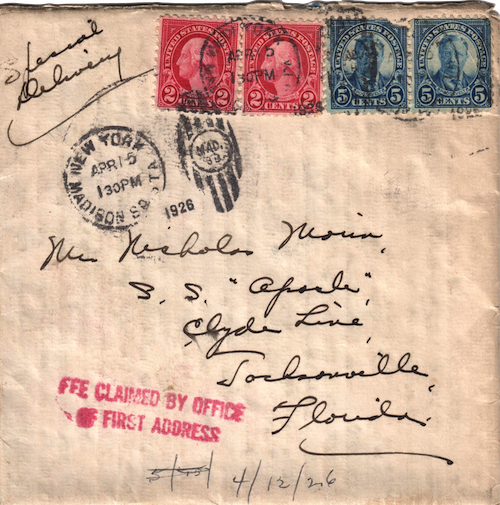 Special
Delivery
UNITED STATES POSTAGE
2 CENTS 2
UNITED STATES POSTAGE
2 CENTS 2
UNITED STATES POSTAGE
5 CENTS 5
UNITED STATES POSTAGE
5 CENTS 5
APR
130PM
NEW YORK
APR 15
130PM
MADISON SQ. STA.
1926
MAD.
SQ.
Mr Nicholas
S. S. "Apache",
Clyde Line,
Jacksonville,
Florida.
FEE CLAIMED BY OFFICE
OF FIRST ADDRESS
4/12/26